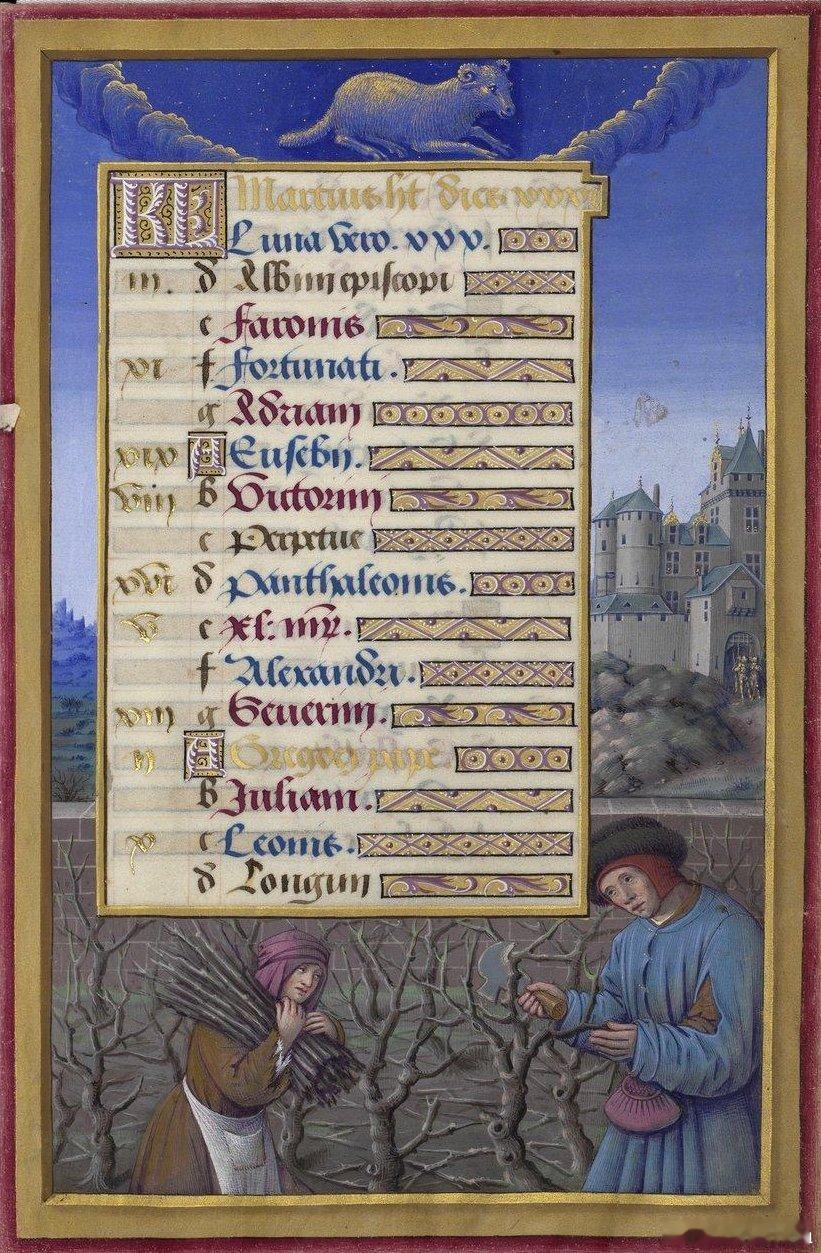 KL Martius ht dies xxxi
Luna vero. xxx.
iii. d Albini episcopi
e Faronis
xi f Fortunati.
g Adriani
xix A Eusebii.
viii b Victorini
c Perpetue
xvi d Panthaleonis.
v e xl: mr̃.
f Alexandri.
xiii g Seuerini.
ii A Gregorii pape
b Juliani.
x c Leonis.
d Longini